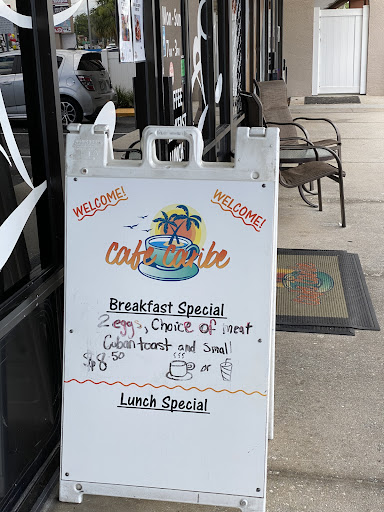 WELCOME!
WELCOME!
cafe caribe
Breakfast Special
2 eggs, Choice of meat
Cuban toast and small
$8.50 or
Lunch Special